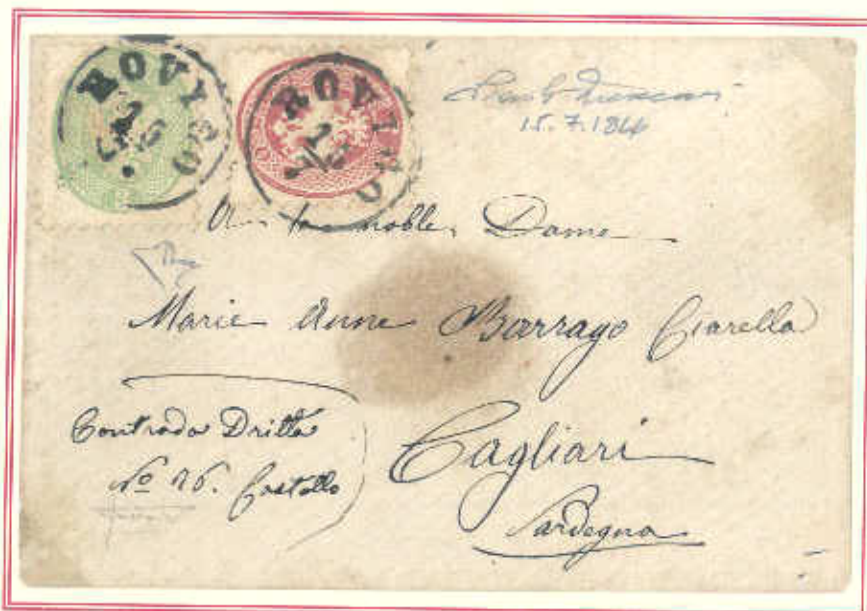 ROVIGO
ROVIGO
15.7.1864
noble Dame
Marie Anne Barrago Ciarella
Contrada Dritta
No 26. Castello
Cagliari
Sardegna